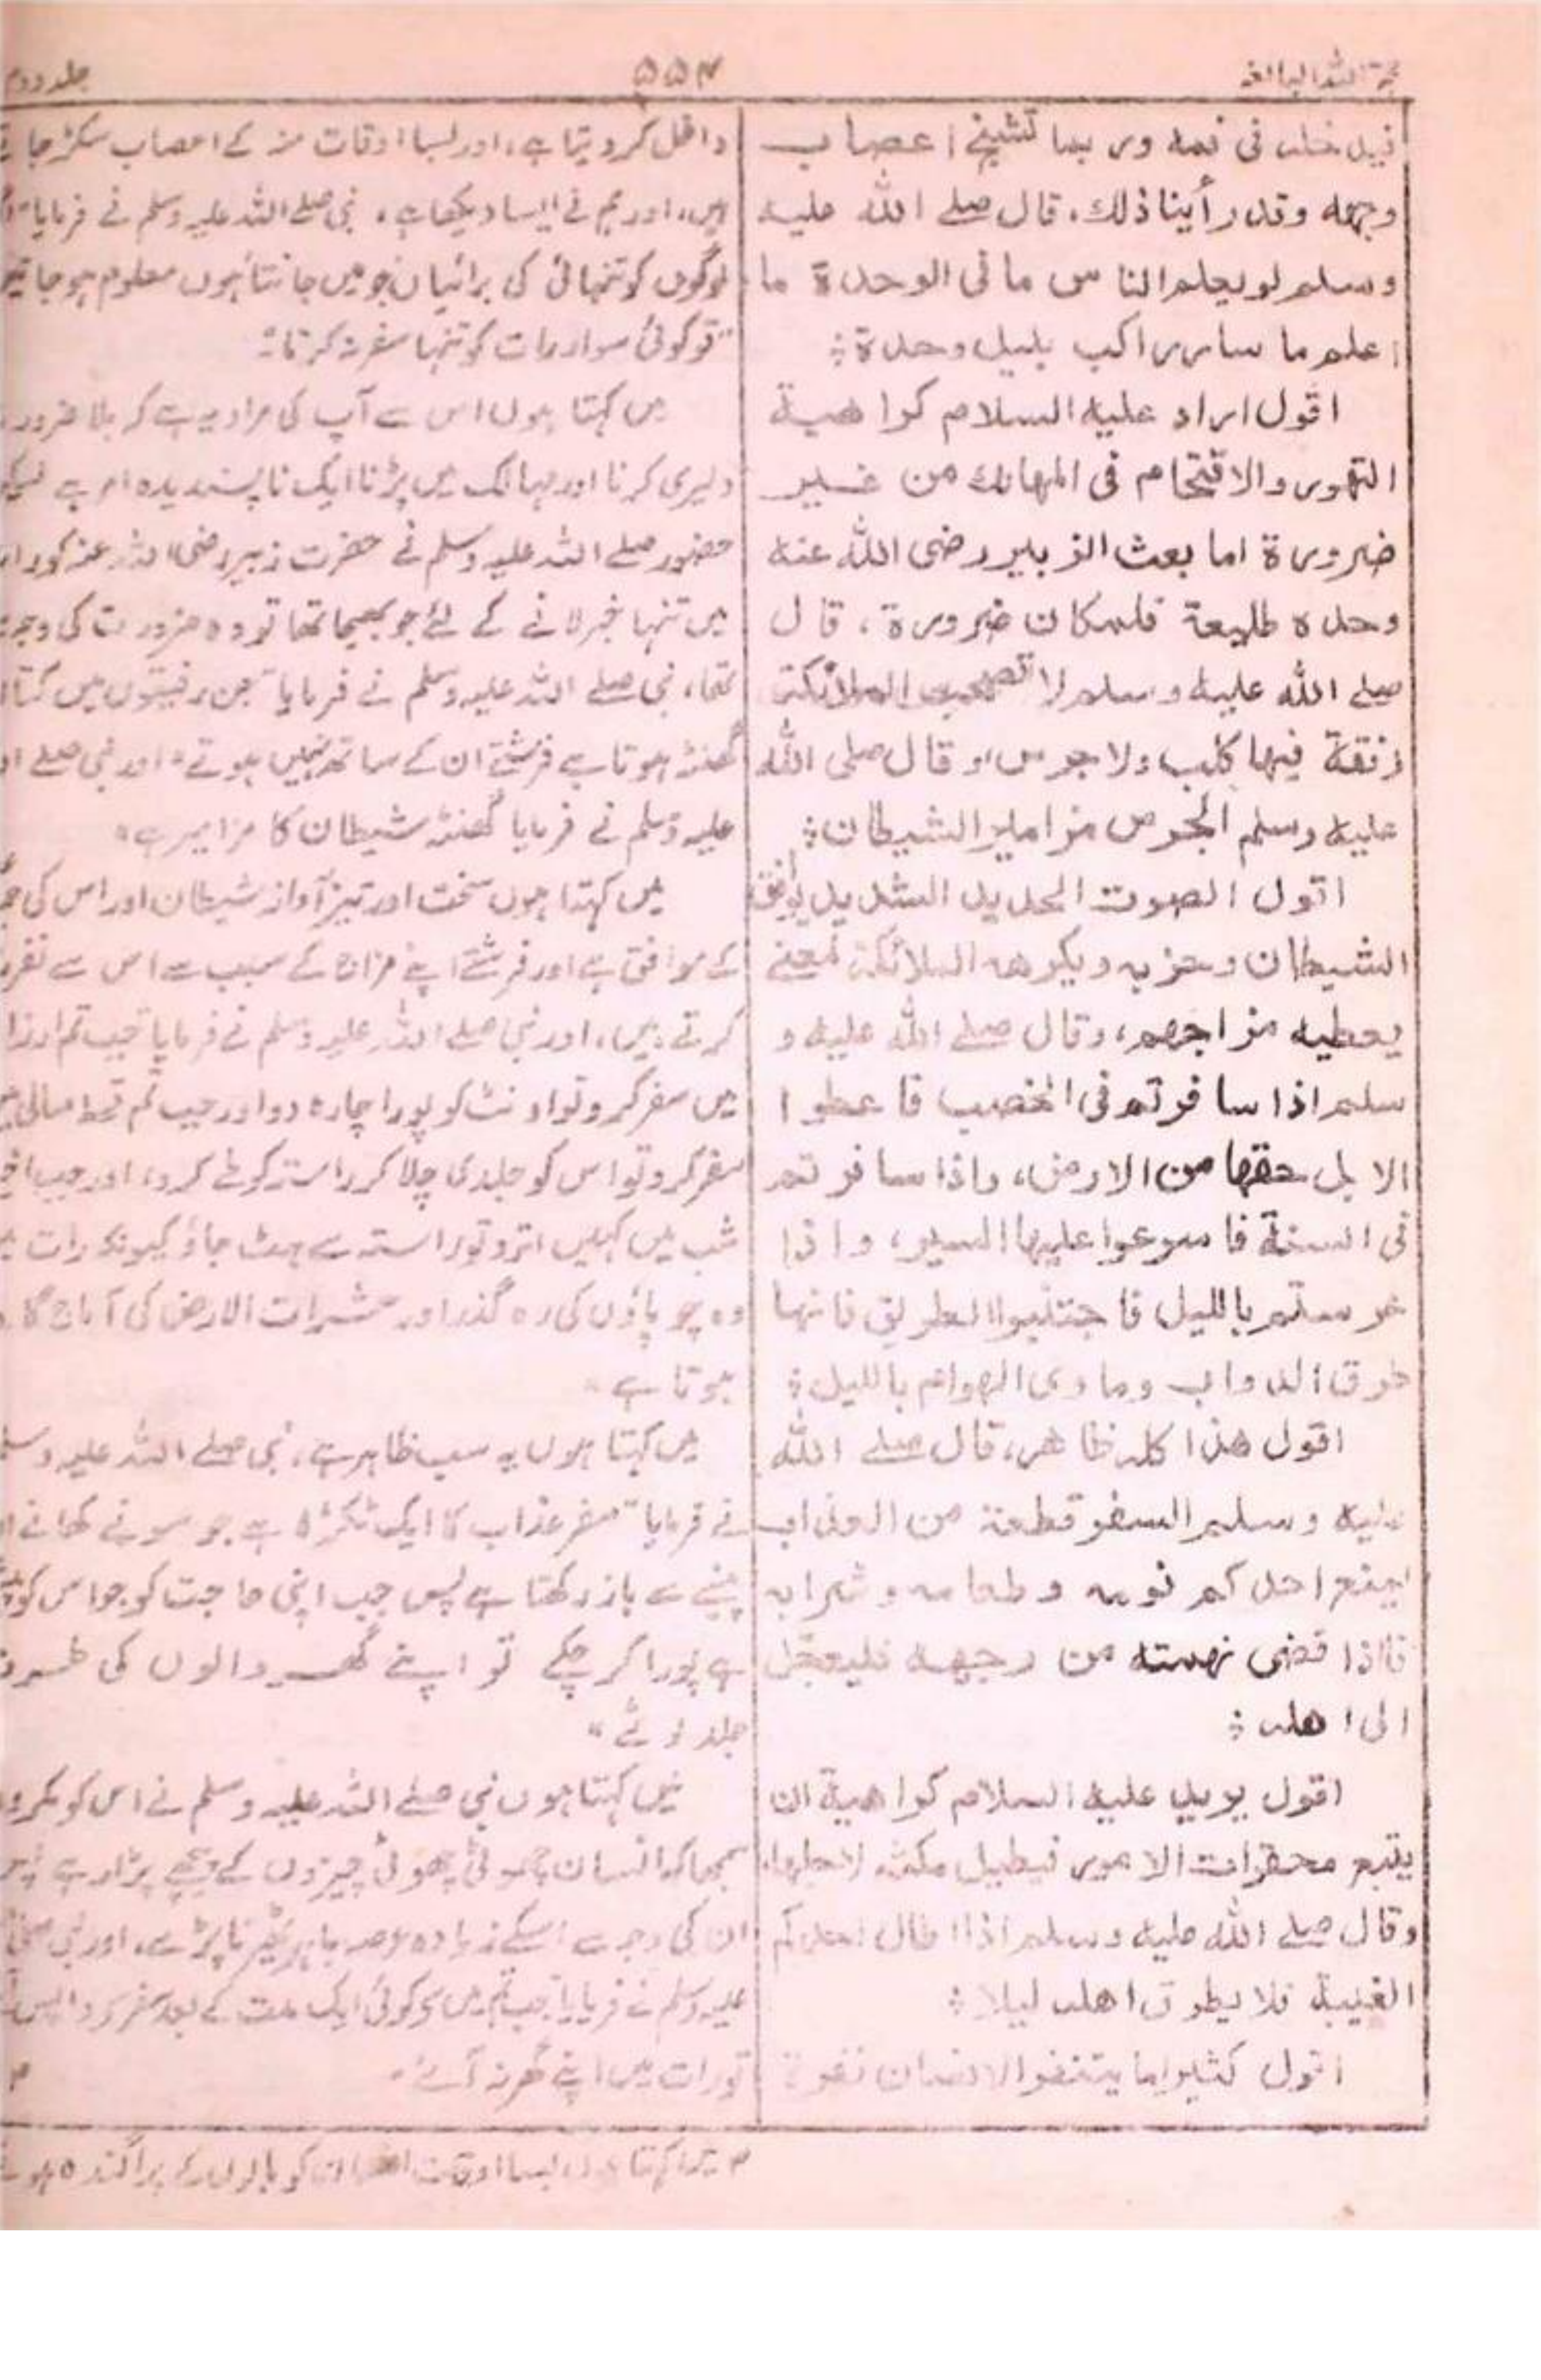 حجۃ اللہ البالغہ
۵۵۴
جلد دوم
فيدخله فى فمه وربما تشنج اعصاب
وجهه وقد رأينا ذلك، قال صلے الله عليه
وسلم لو يعلم الناس ما فى الوحدة ما
اعلم ما سار راكب بليل وحدة ؛
اقول اراد عليه السلام كراهية
التهور والاقتحام فى المهالك من غير
ضرورة اما بعث الزبير رضى الله عنه
وحده طليعة فلمكان ضرورة، قال
صلے الله عليه وسلم لا تصحب الملائكة
رفقة فيها كلب ولا جرس، وقال صلى الله
عليه وسلم الجرس مزامير الشيطان ؛
اقول الصوت الحديد الشديد يوافق
الشيطان وحزبه ويكرهه الملائكة لمعنے
يعطيه مزاجهم، وقال صلے الله عليه و
سلم اذا سافرتم فى الخصب فاعطوا
الابل حقها من الارض، واذا سافرتم
فى السنة فاسرعوا عليها السير، واذا
عرستم بالليل فاجتنبوا الطريق فانها
طرق الدواب وماوى الهوام بالليل ؛
اقول هذا كله ظاهر، قال صلے الله
عليه وسلم السفر قطعة من العذاب
يمنع احدكم نومه وطعامه وشرابه
فاذا قضى نهمته من وجهه فليعجل
الى اهله ؛
اقول يريد عليه السلام كراهية ان
يتبع محقرات الامور فيطيل مكثه لاجلها،
وقال صلے الله عليه وسلم اذا اطال احدكم
الغيبة فلا يطرق اهله ليلا ؛
اقول كثيرا ما يتنفر الانسان نفرة
داخل کر دیتا ہے، اور بسا اوقات منہ کے اعصاب سکڑ جاتے
ہیں، اور ہم نے ایسا دیکھا ہے، نبی صلے اللہ علیہ وسلم نے فرمایا"
لوگوں کو تنہائی کی برائیاں جو میں جانتا ہوں معلوم ہو جائیں
تو کوئی سوار رات کو تنہا سفر نہ کرتا"
میں کہتا ہوں اس سے آپ کی مراد یہ ہے کہ بلا ضرورت
دلیری کرنا اور مہالک میں پڑنا ایک ناپسندیدہ امر ہے
حضور صلے اللہ علیہ وسلم نے حضرت زبیر رضی اللہ عنہ کو رات
میں تنہا خبر لانے کے لئے جو بھیجا تھا تو وہ ضرورت کی وجہ سے
تھا، نبی صلے اللہ علیہ وسلم نے فرمایا "جن رفیقوں میں کتا
گھنٹہ ہوتا ہے فرشتے ان کے ساتھ نہیں ہوتے" اور نبی صلے
علیہ وسلم نے فرمایا گھنٹہ شیطان کا مزامیر ہے"
میں کہتا ہوں سخت اور تیز آواز شیطان اور اس کی
کے موافق ہے اور فرشتے اپنے مزاج کے سبب سے اس سے نفرت
کرتے ہیں، اور نبی صلے اللہ علیہ وسلم نے فرمایا جب تم ارزانی
میں سفر کرو تو اونٹ کو پورا چارہ دو اور جب تم قحط سالی میں
سفر کرو تو اس کو جلدی چلا کر راستہ کو طے کرو، اور جب
شب میں کہیں اترو تو راستہ سے ہٹ جاؤ کیونکہ رات
وہ چوپاؤں کی رہ گذر اور حشرات الارض کی آماج گاہ
ہوتا ہے"
میں کہتا ہوں یہ سب ظاہر ہے، نبی صلے اللہ علیہ وسلم
نے فرمایا "سفر عذاب کا ایک ٹکڑا ہے جو سونے کھانے
پینے سے باز رکھتا ہے پس جب اپنی حاجت کو جو اس کو
ہے پورا کر چکے تو اپنے گھر والوں کی طرف
جلد لوٹے"
میں کہتا ہوں نبی صلے اللہ علیہ وسلم نے اس کو مکروہ
سمجھا کہ انسان چھوٹی چھوٹی چیزوں کے پیچھے پڑا رہے
ان کی وجہ سے اسکے زیادہ عرصہ باہر ٹھیرنا پڑے، اور نبی صلے
علیہ وسلم نے فرمایا جب تم میں کوئی ایک مدت کے بعد سفر کر واپس
تو رات میں اپنے گھر نہ آئے"
۴
۴ میں کہتا ہوں بسا اوقات انسان کو بالوں کے پراگندہ ہونے